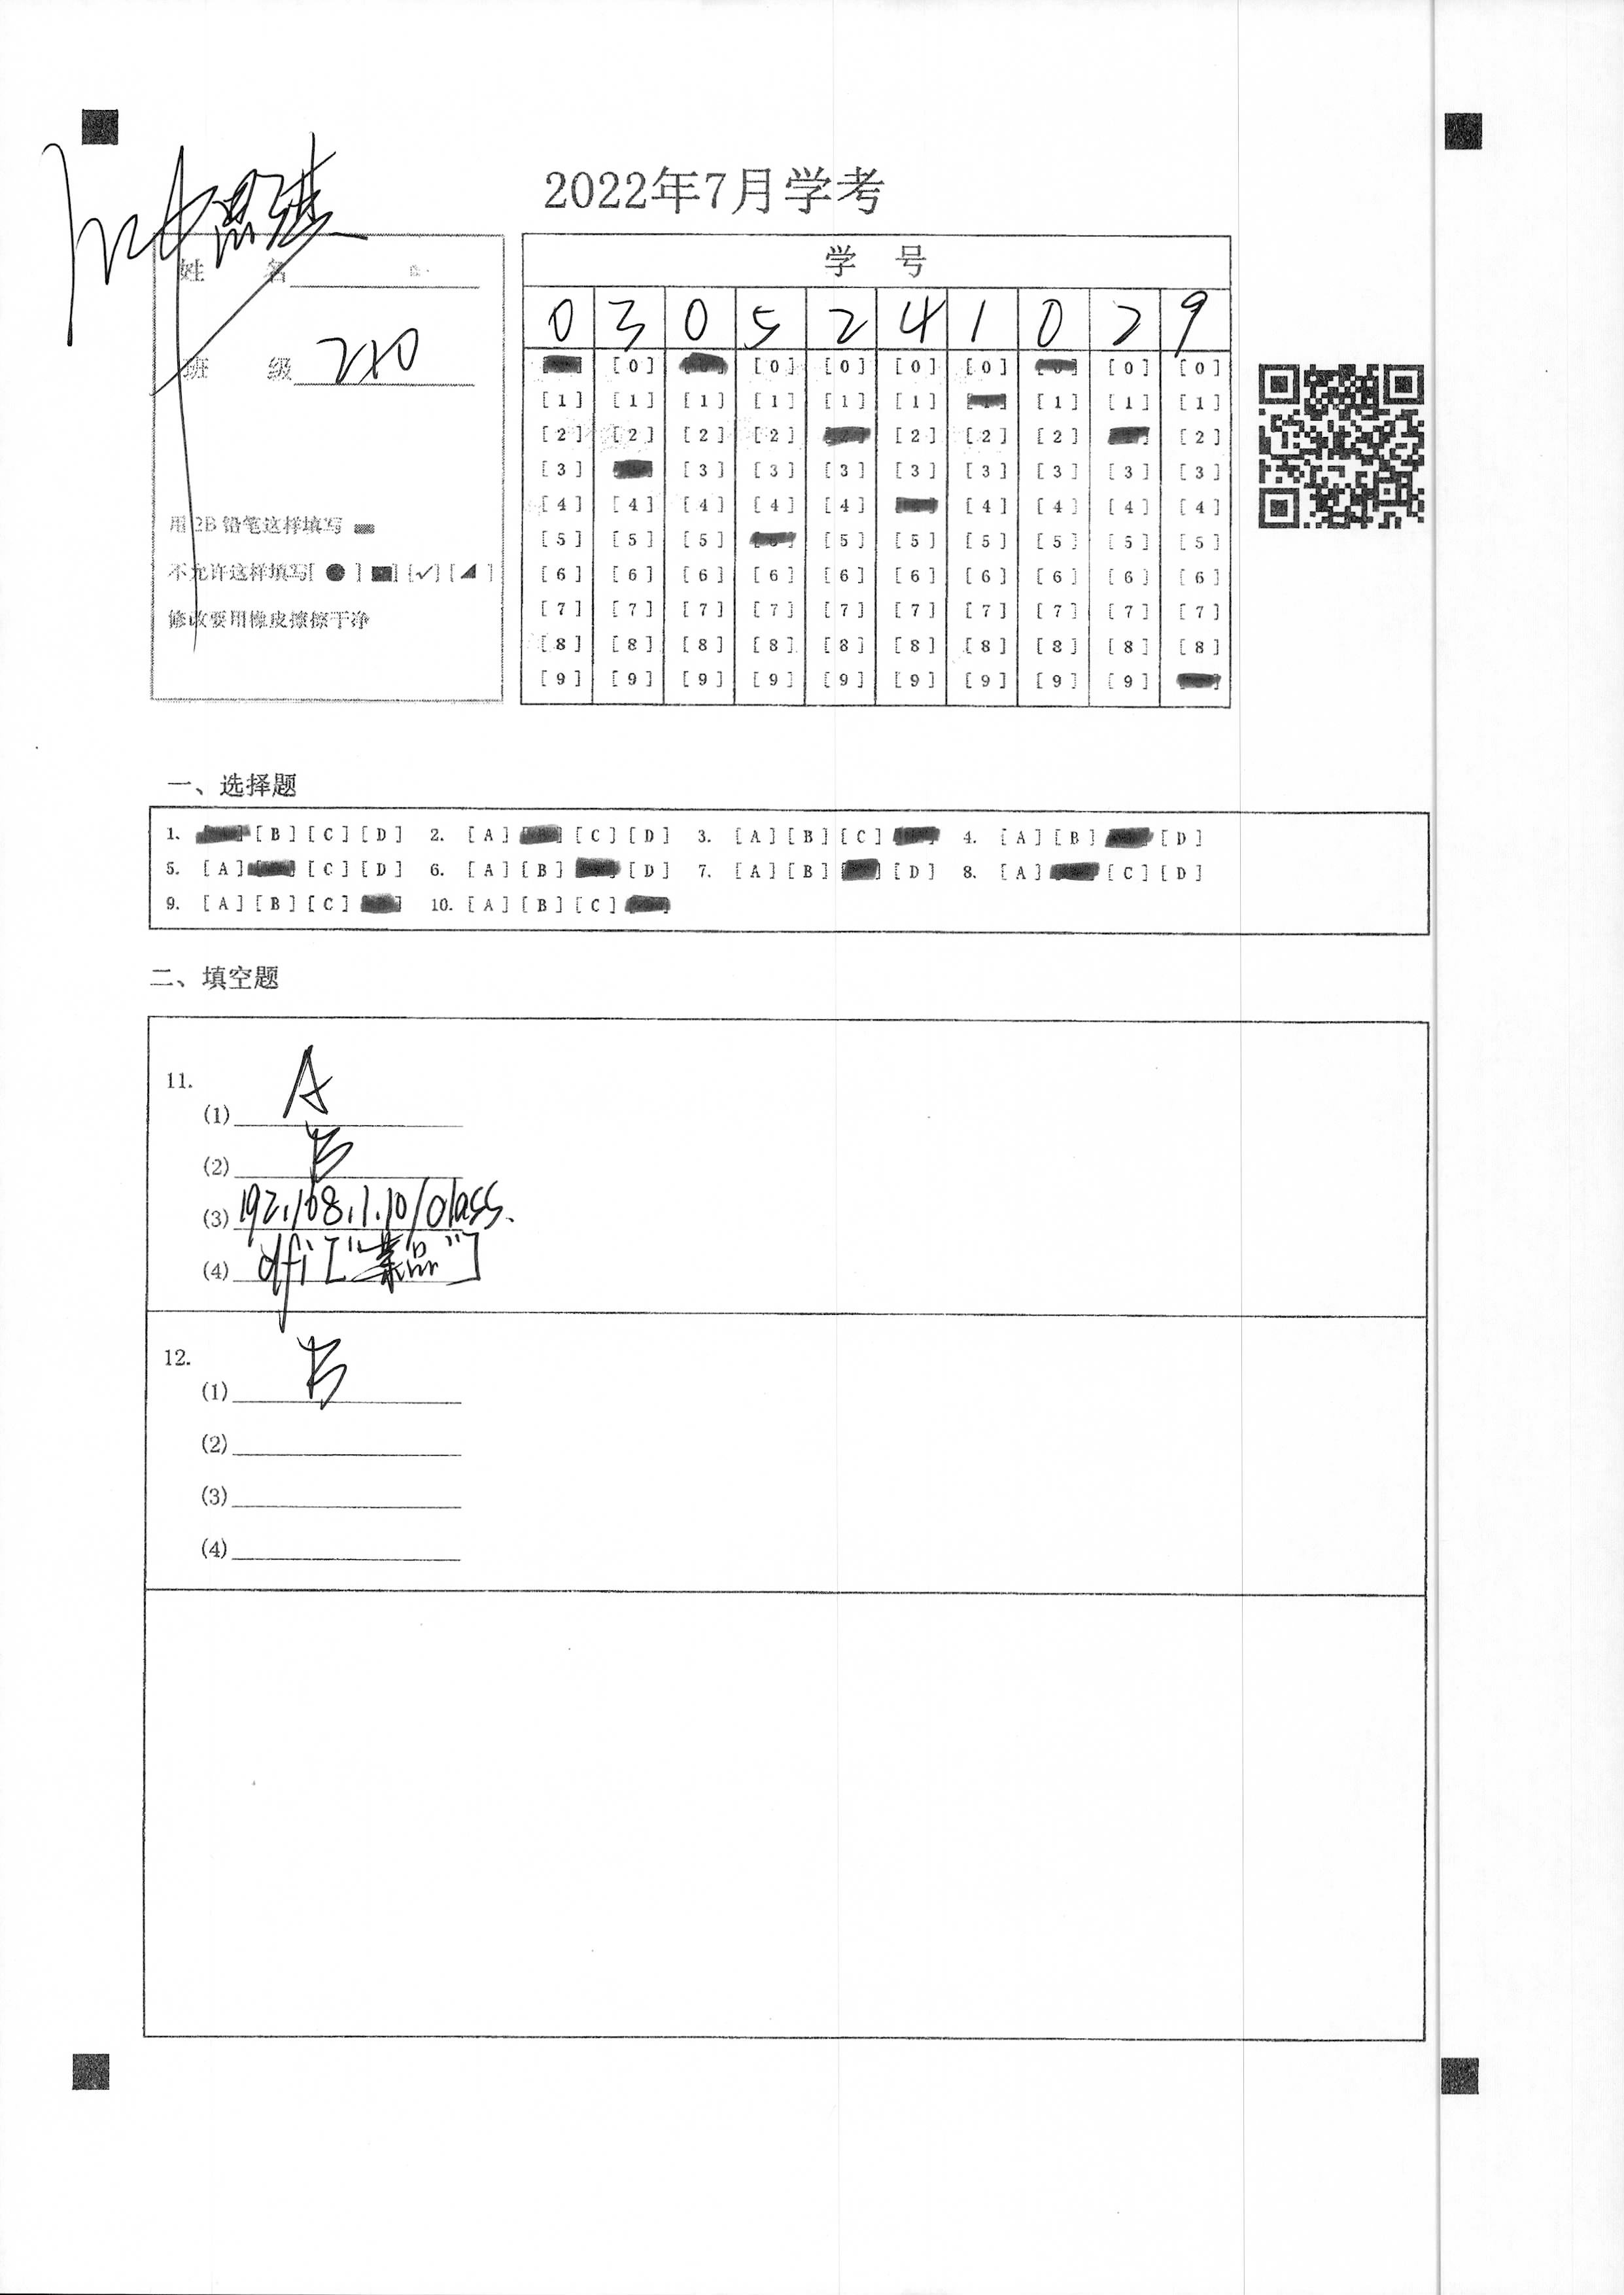 2022年7月学考
思进
姓 名
班 级 210
用2B铅笔这样填写
不允许这样填写[●] [■] [✓] [◢]
修改要用橡皮擦擦干净
学 号
0 3 0 5 2 4 1 0 2 9
[0] [0] [0] [0] [0] [0]
[1] [1] [1] [1] [1] [1] [1] [1] [1]
[2] [2] [2] [2] [2] [2] [2] [2]
[3] [3] [3] [3] [3] [3] [3] [3] [3]
[4] [4] [4] [4] [4] [4] [4] [4] [4]
[5] [5] [5] [5] [5] [5] [5] [5] [5]
[6] [6] [6] [6] [6] [6] [6] [6] [6] [6]
[7] [7] [7] [7] [7] [7] [7] [7] [7] [7]
[8] [8] [8] [8] [8] [8] [8] [8] [8] [8]
[9] [9] [9] [9] [9] [9] [9] [9] [9]
一、选择题
1. [B] [C] [D] 2. [A] [C] [D] 3. [A] [B] [C] 4. [A] [B] [D]
5. [A] [C] [D] 6. [A] [B] [D] 7. [A] [B] [D] 8. [A] [C] [D]
9. [A] [B] [C] 10. [A] [B] [C]
二、填空题
11.
(1) A
(2) B
(3) 192.168.1.10/class.
(4) dfi["菜品"]
12.
(1) B
(2)
(3)
(4)